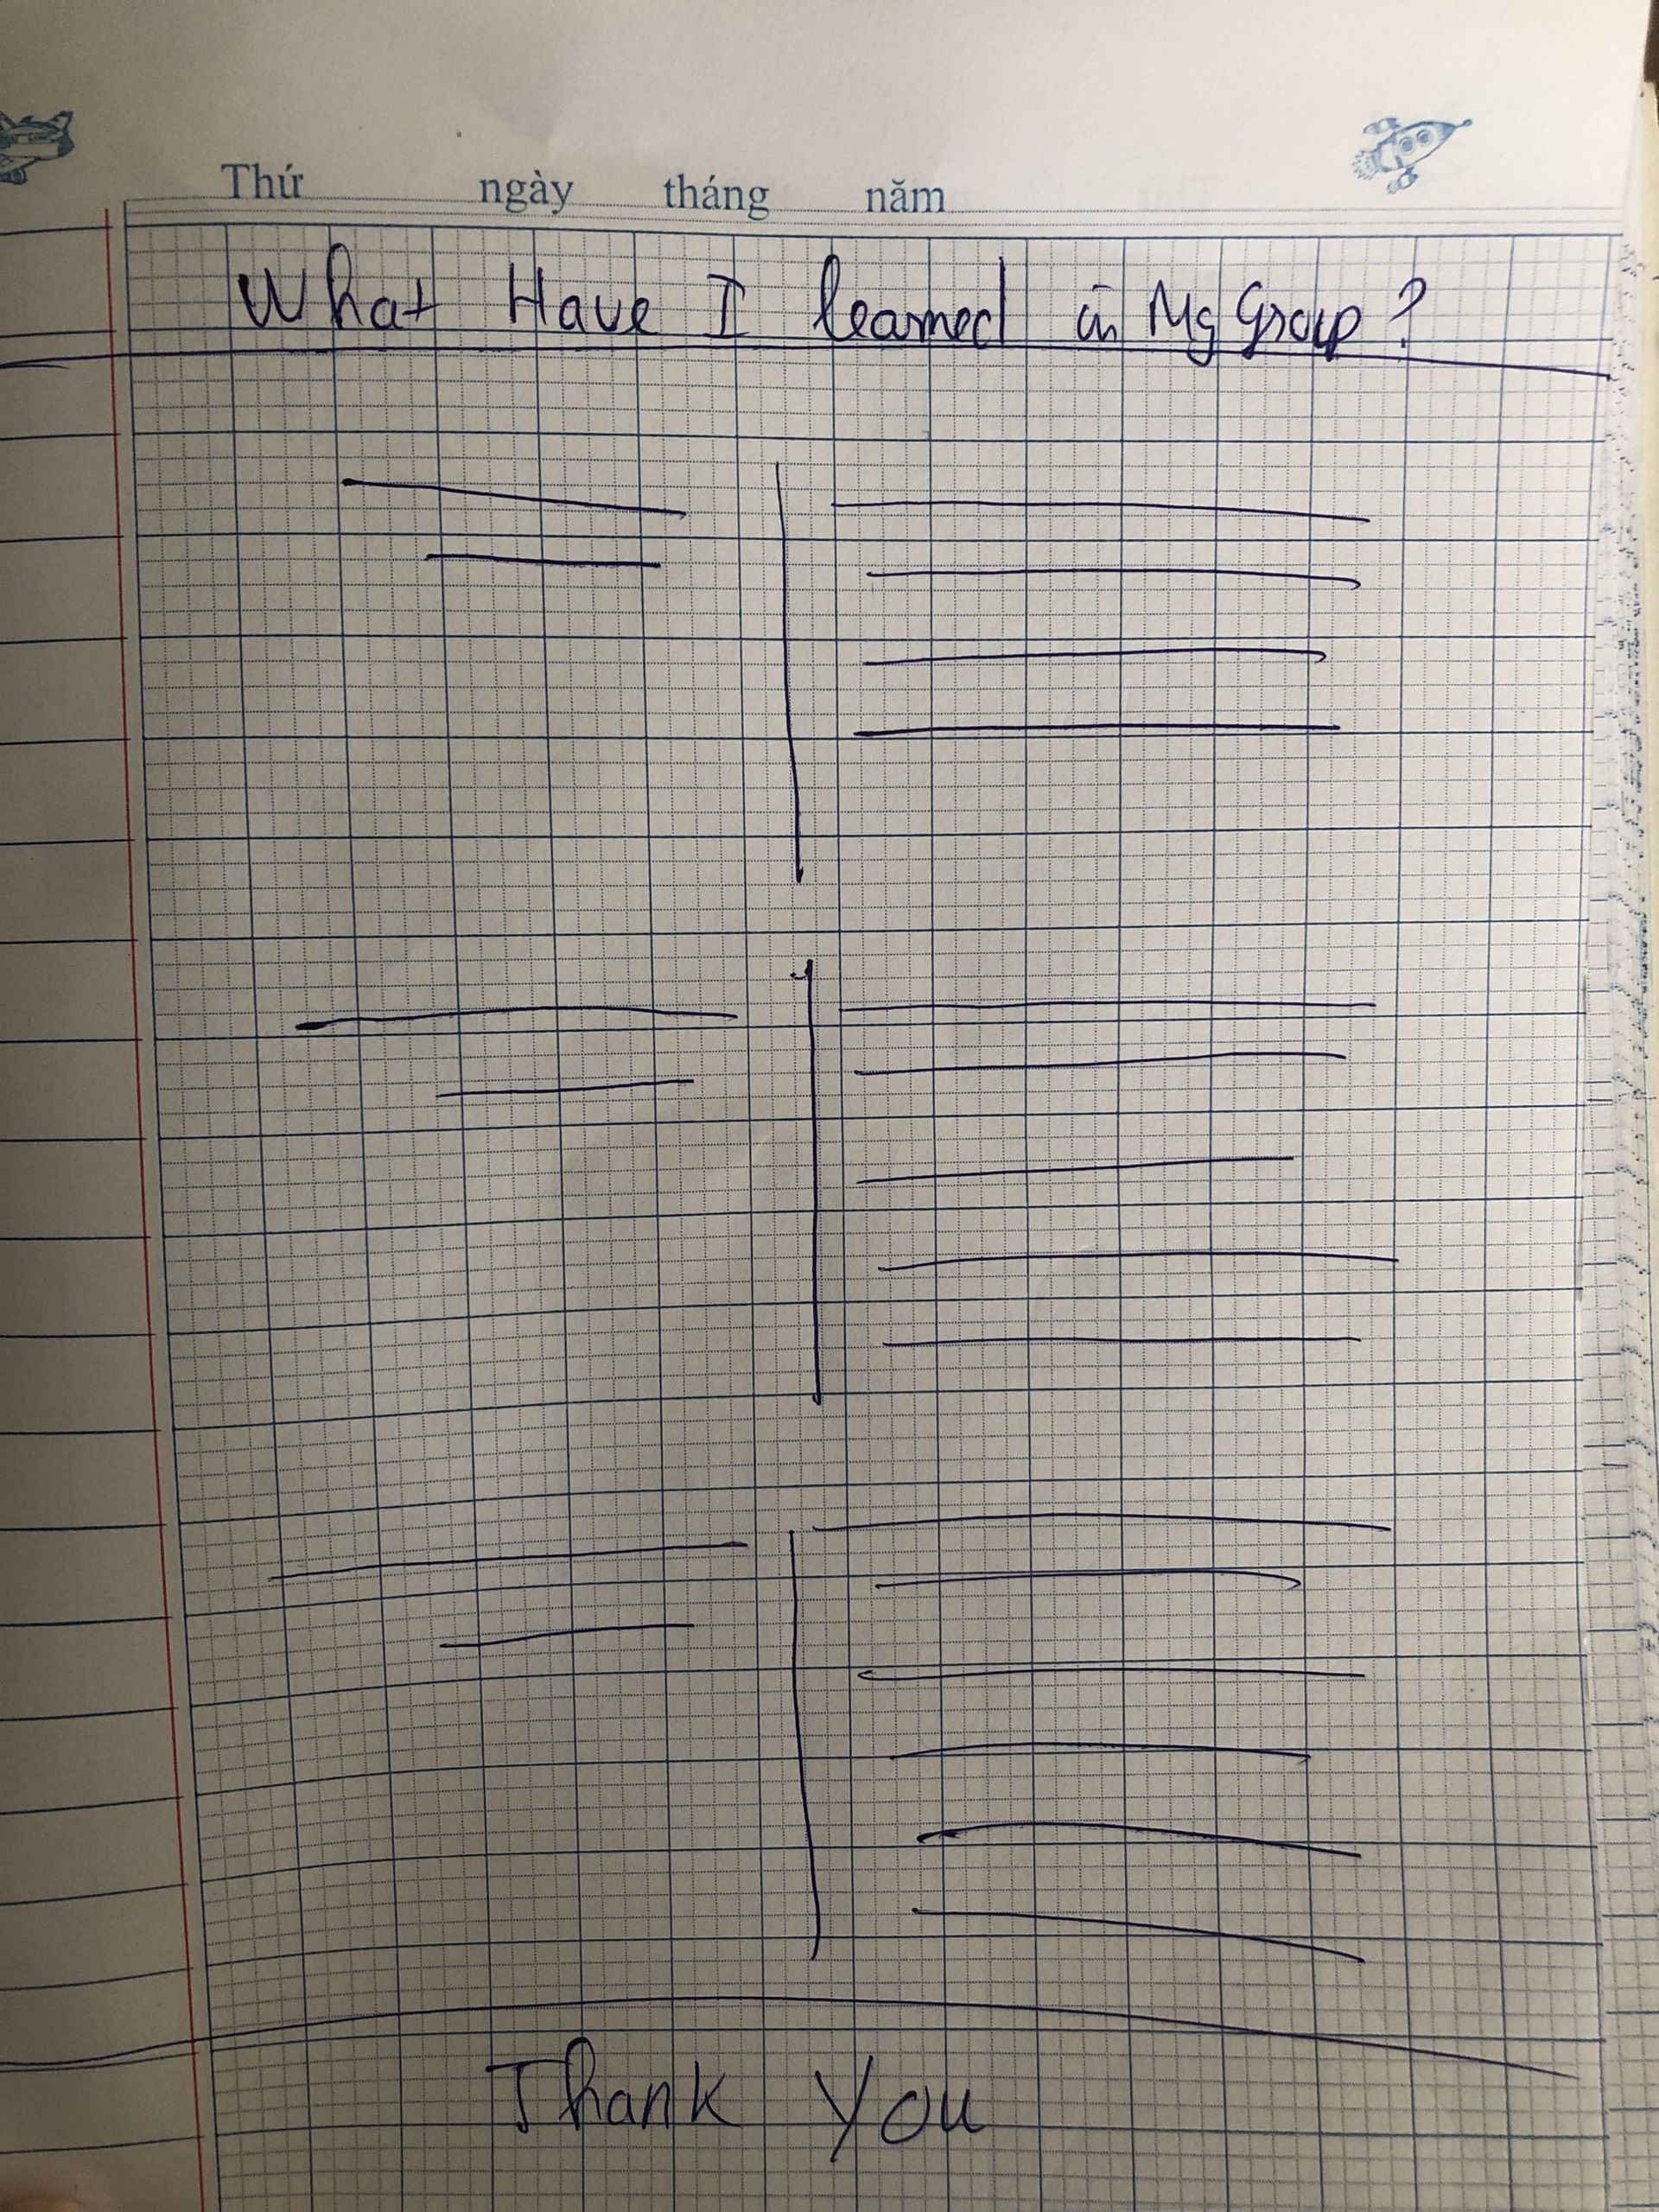 Thứ ngày tháng năm
What Have I learned in My Group?
Thank You